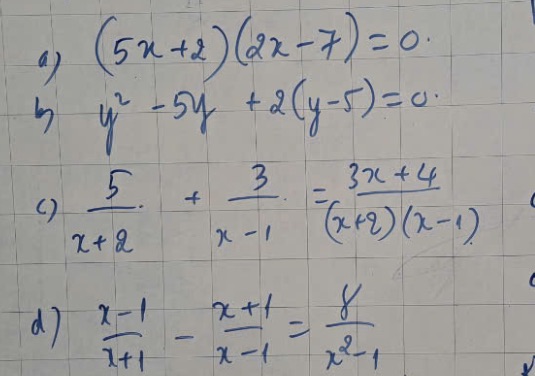 a) (5x+2)(2x-7)=0.
b) y² -5y +2(y-5)=0.
c) 5/(x+2) + 3/(x-1) = (3x+4)/((x+2)(x-1))
d) (x-1)/(x+1) - (x+1)/(x-1) = 8/(x²-1)